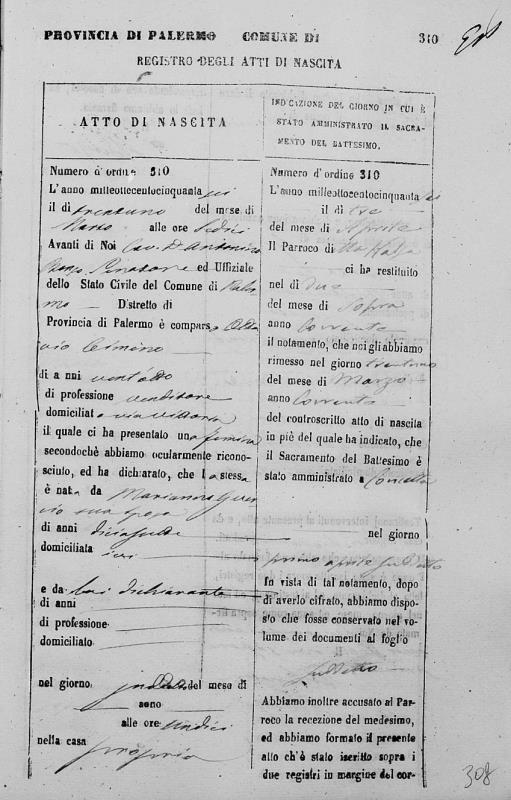 PROVINCIA DI PALERMO COMUNE DI 310
REGISTRO DEGLI ATTI DI NASCITA
ATTO DI NASCITA
Numero d'ordine 310
L'anno milleottocentocinquanta sei
il di trentuno del mese di
Marzo alle ore sedici
Avanti di Noi Cav. D. Antonino
Senatore ed Uffiziale
dello Stato Civile del Comune di Paler
mo Distretto di
Provincia di Palermo è comparso Otta
vio Cimino
di anni ventotto
di professione venditore
domiciliato via Vittoria
il quale ci ha presentato una femina
secondochè abbiamo ocularmente ricono-
sciuto, ed ha dichiarato, che la stessa
è nata da Marianna
sua sposa
di anni diciasette
domiciliata ivi
e da lui dichiarante
di anni
di professione
domiciliato
nel giorno suddetto del mese di
anno
alle ore undici
nella casa propria
INDICAZIONE DEL GIORNO IN CUI È
STATO AMMINISTRATO IL SACRA-
MENTO DEL BATTESIMO.
Numero d'ordine 310
L'anno milleottocentocinquanta sei
il di tre
del mese di Aprile
Il Parroco di Kalsa
ci ha restituito
nel di due
del mese di Sopra
anno Corrente
il notamento, che noi gli abbiamo
rimesso nel giorno trentuno
del mese di Marzo
anno Corrente
del controscritto atto di nascita
in piè del quale ha indicato, che
il Sacramento del Battesimo è
stato amministrato a Concetta
nel giorno
primo aprile suddetto
In vista di tal notamento, dopo
di averlo cifrato, abbiamo dispo-
sto che fosse conservato nel vo-
lume dei documenti al foglio
suddetto
Abbiamo inoltre accusato al Par-
roco la recezione del medesimo,
ed abbiamo formato il presente
atto ch'è stato iscritto sopra i
due registri in margine del cor-
308